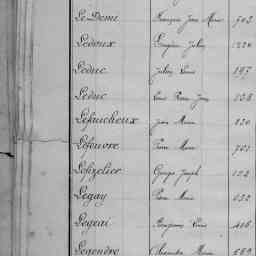 Le Deme François Jean Marie 703
Ledoux Eugène Julien 1220
Leduc Julien Louis 197
Leduc Louis Pierre Jean 238
Lefaucheux Jean Marie 830
Lefeuvre Pierre Marie 701
Lefizelier George Joseph 122
Legay Pierre Marie 032
Legeai Louis 416
Legendre Alexandre Marie